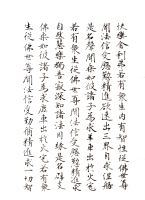 快樂舍利弗若有眾生內有智性從佛世尊
聞法信受慇懃精進欲速出三界自求涅槃
是名聲聞乘如彼諸子為求羊車出於火宅
若有眾生從佛世尊聞法信受慇懃精進求
自然慧樂獨善寂深知諸法因緣是名辟支
佛乘如彼諸子為求鹿車出於火宅若有眾
生從佛世尊聞法信受勤修精進求一切智